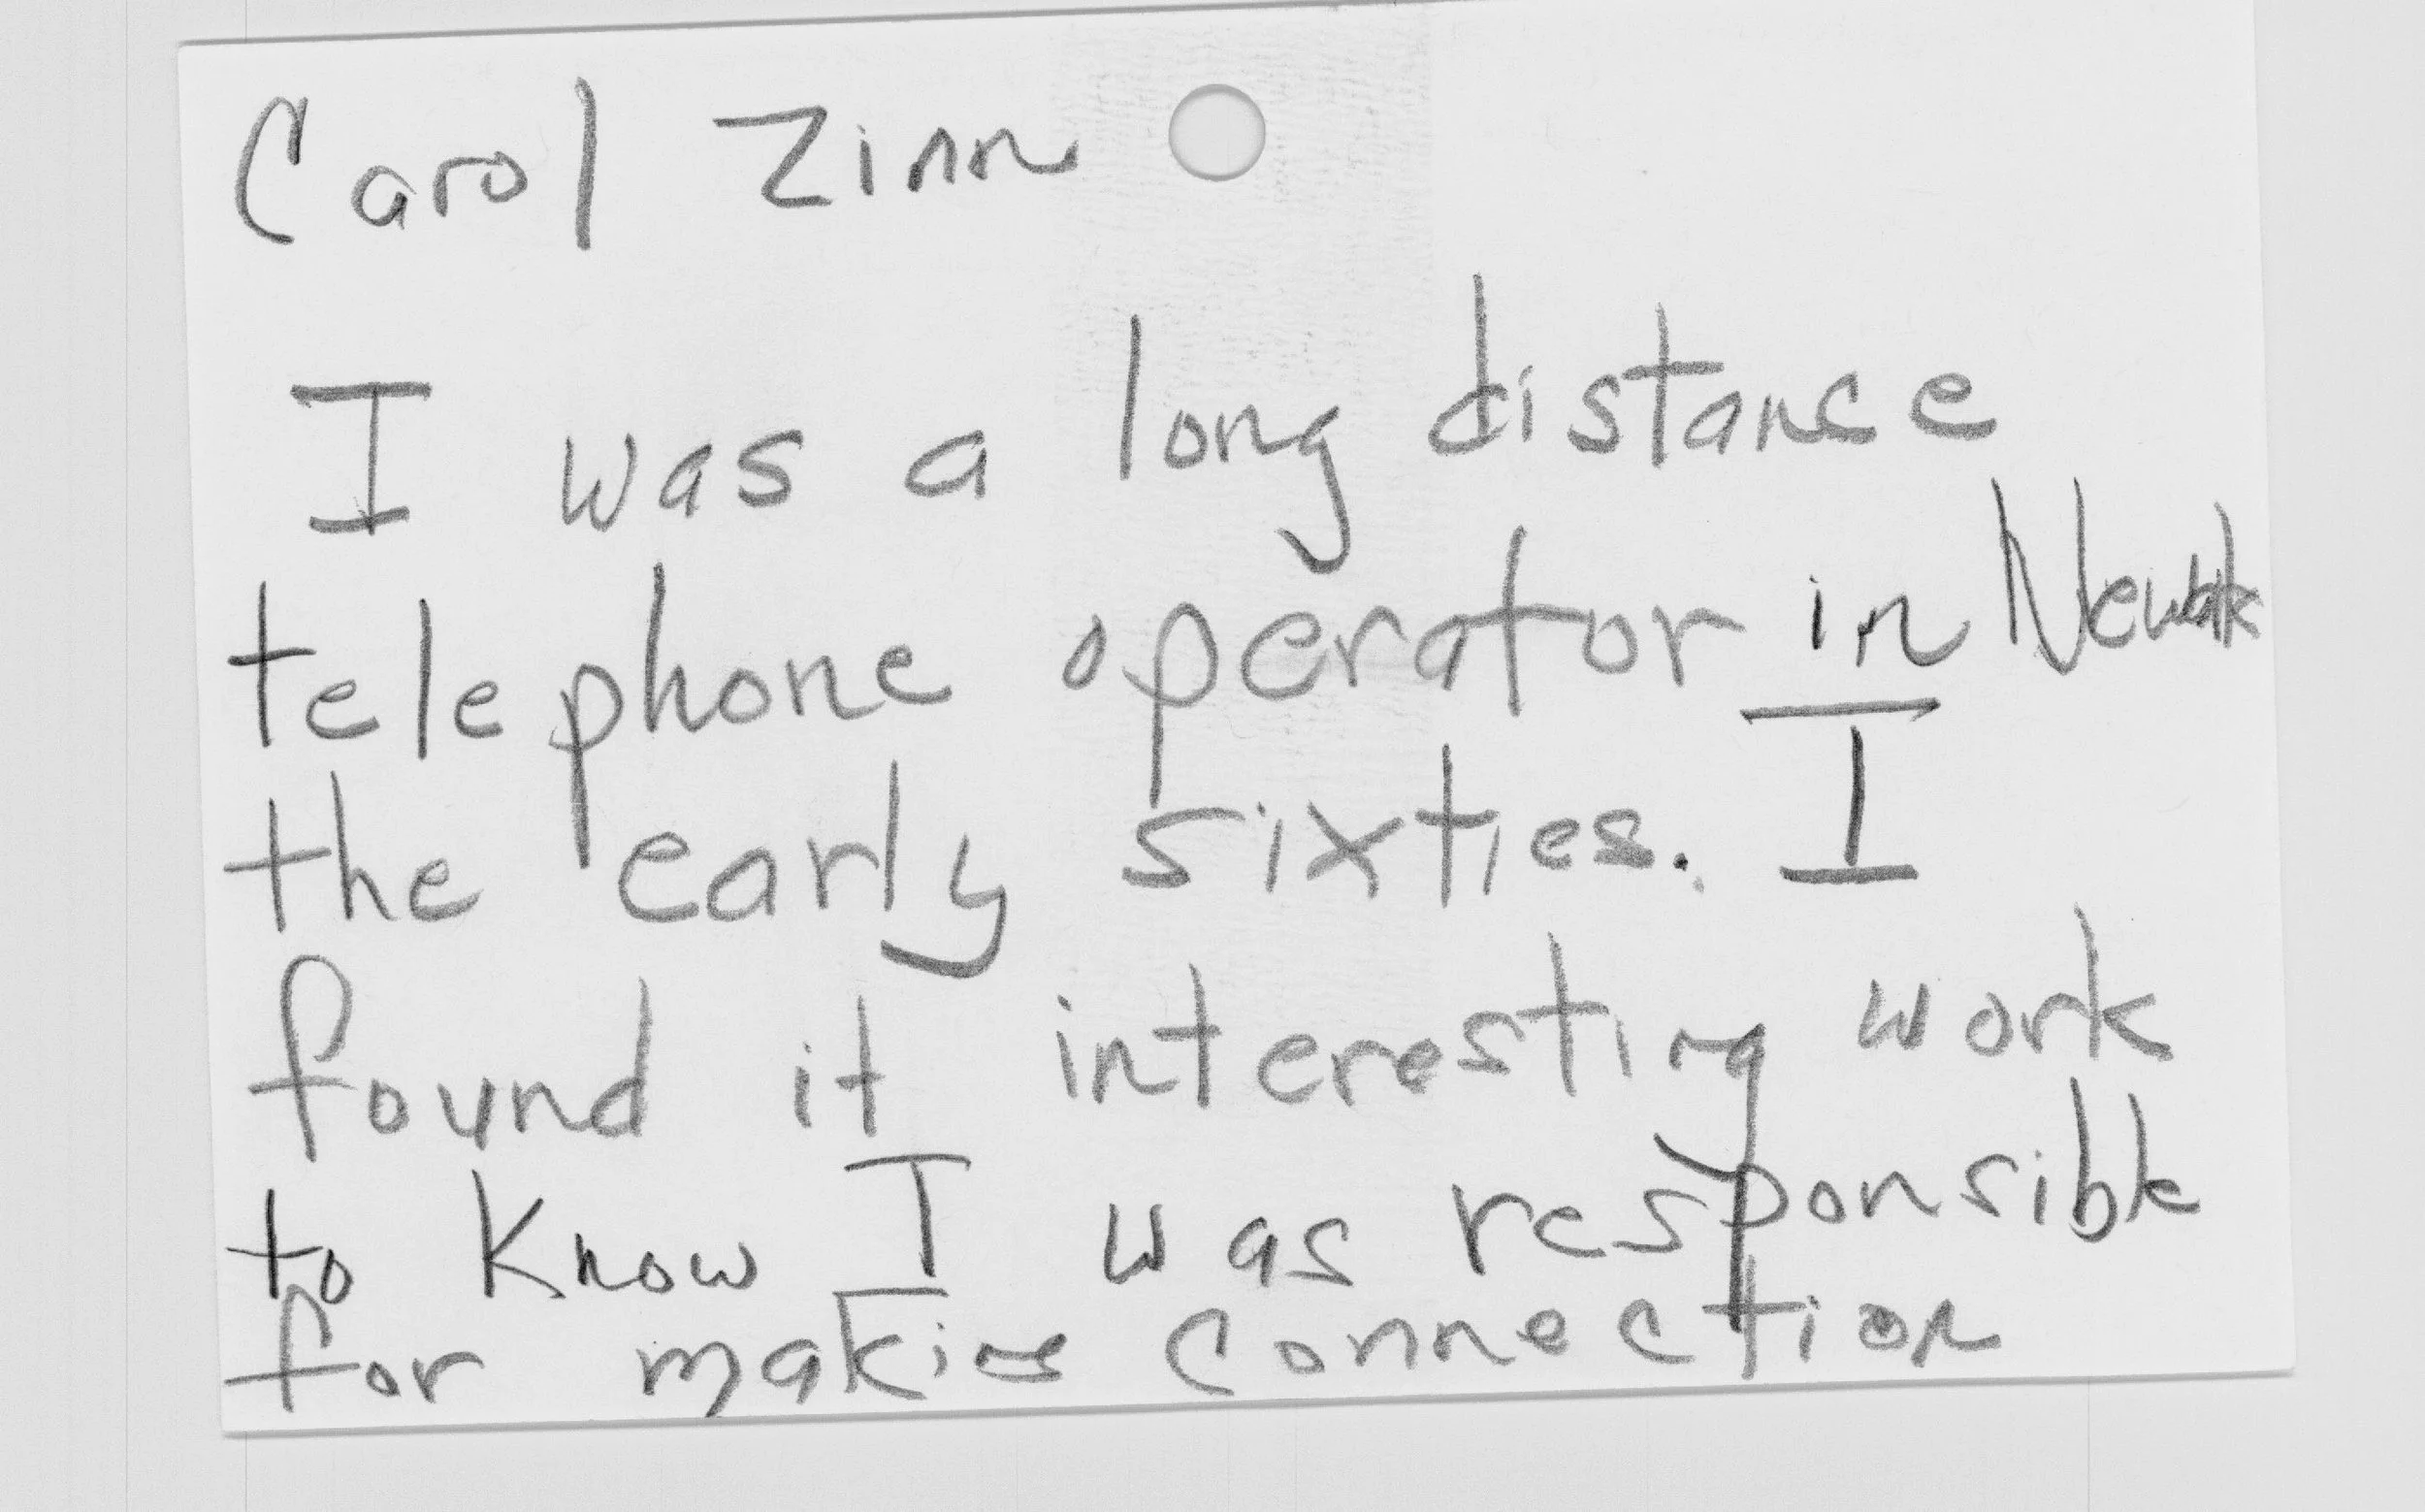 Carol Zinn
I was a long distance
telephone operator in Newark
the early sixties. I
found it interesting work
to know I was responsible
for making connection